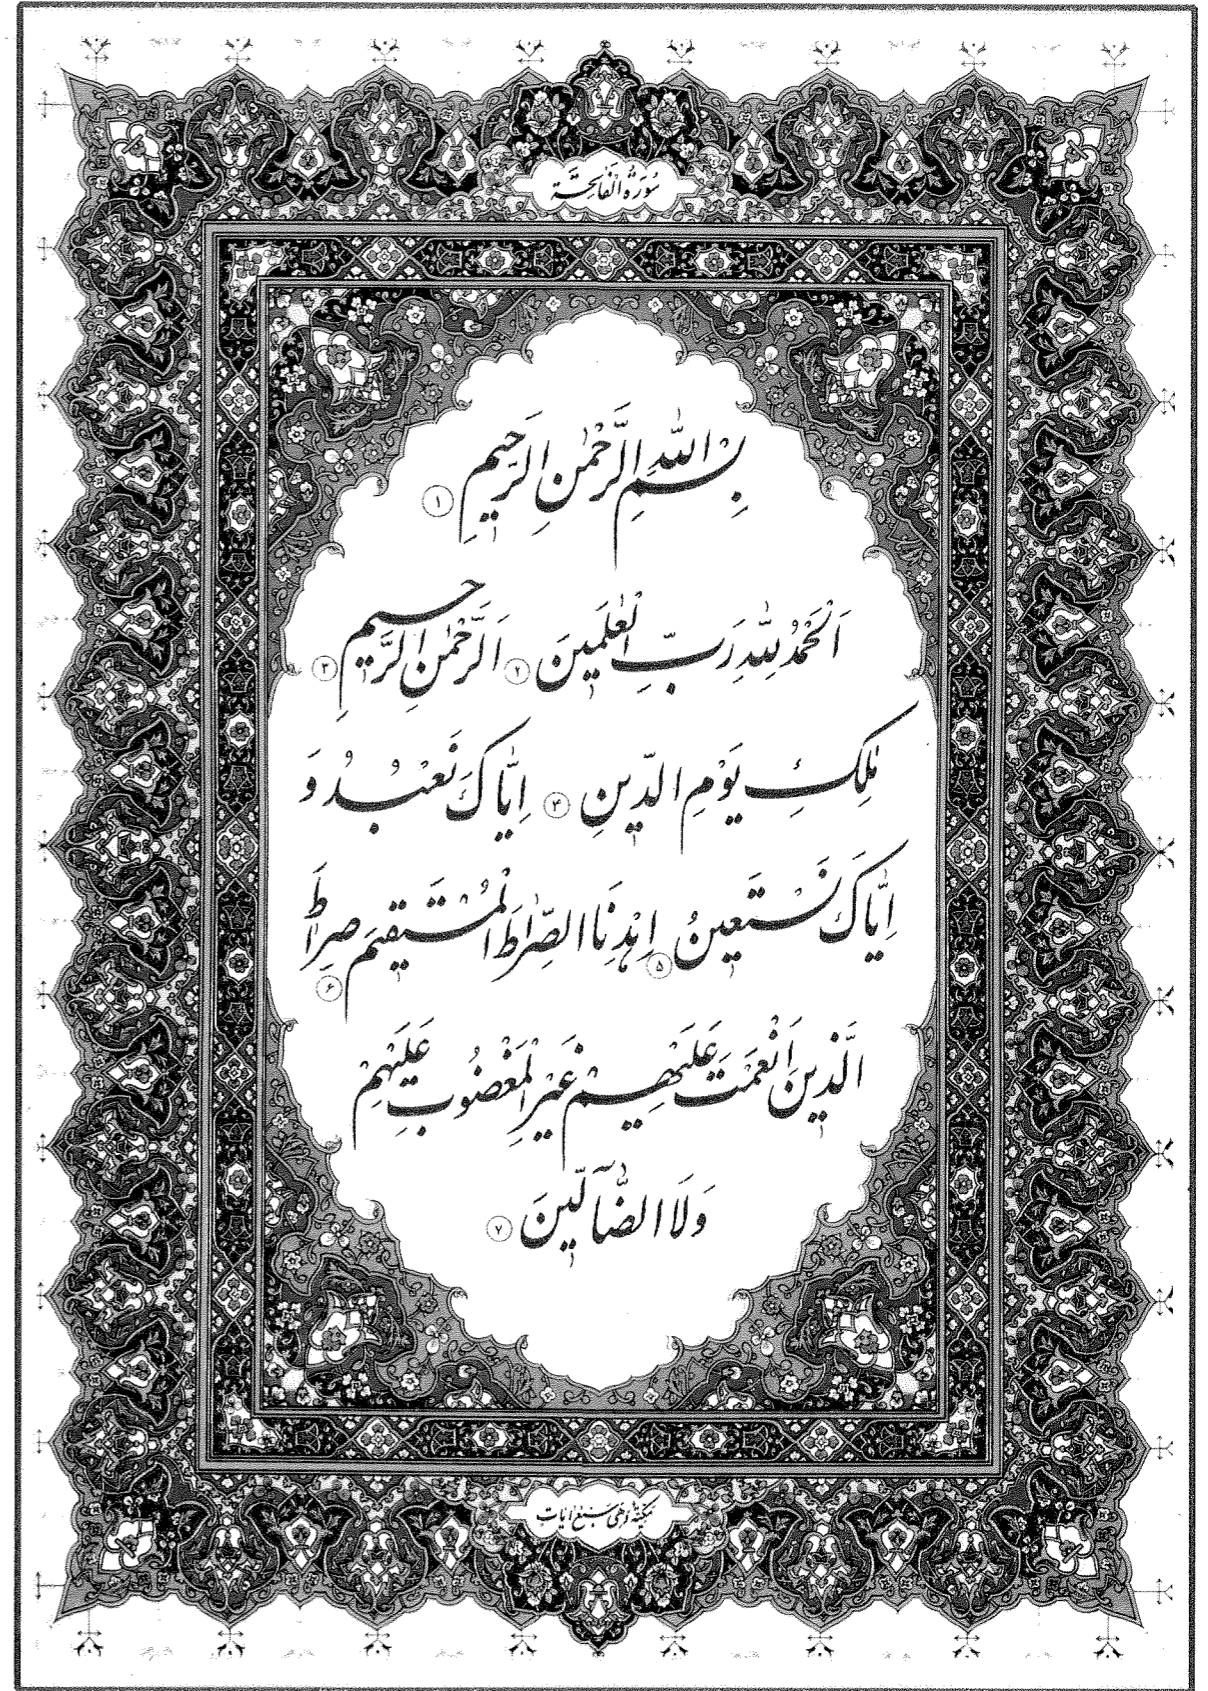 سُورَةُ الْفَاتِحَة
بِسْمِ اللّٰهِ الرَّحْمٰنِ الرَّحِيمِ ۱
اَلْحَمْدُ لِلّٰهِ رَبِّ الْعٰلَمِينَ ۲ اَلرَّحْمٰنِ الرَّحِيمِ ۳
مٰلِكِ يَوْمِ الدِّينِ ۴ اِيّٰاكَ نَعْبُدُ وَ
اِيّٰاكَ نَسْتَعِينُ ۵ اِهْدِنَا الصِّرٰاطَ الْمُسْتَقِيمَ ۶ صِرٰاطَ
الَّذِينَ اَنْعَمْتَ عَلَيْهِمْ غَيْرِ الْمَغْضُوبِ عَلَيْهِمْ
وَلَا الضّٰٓالِّينَ ۷
مَكِيَّةٌ وَهِیَ سَبْعُ اٰيَاتٍ